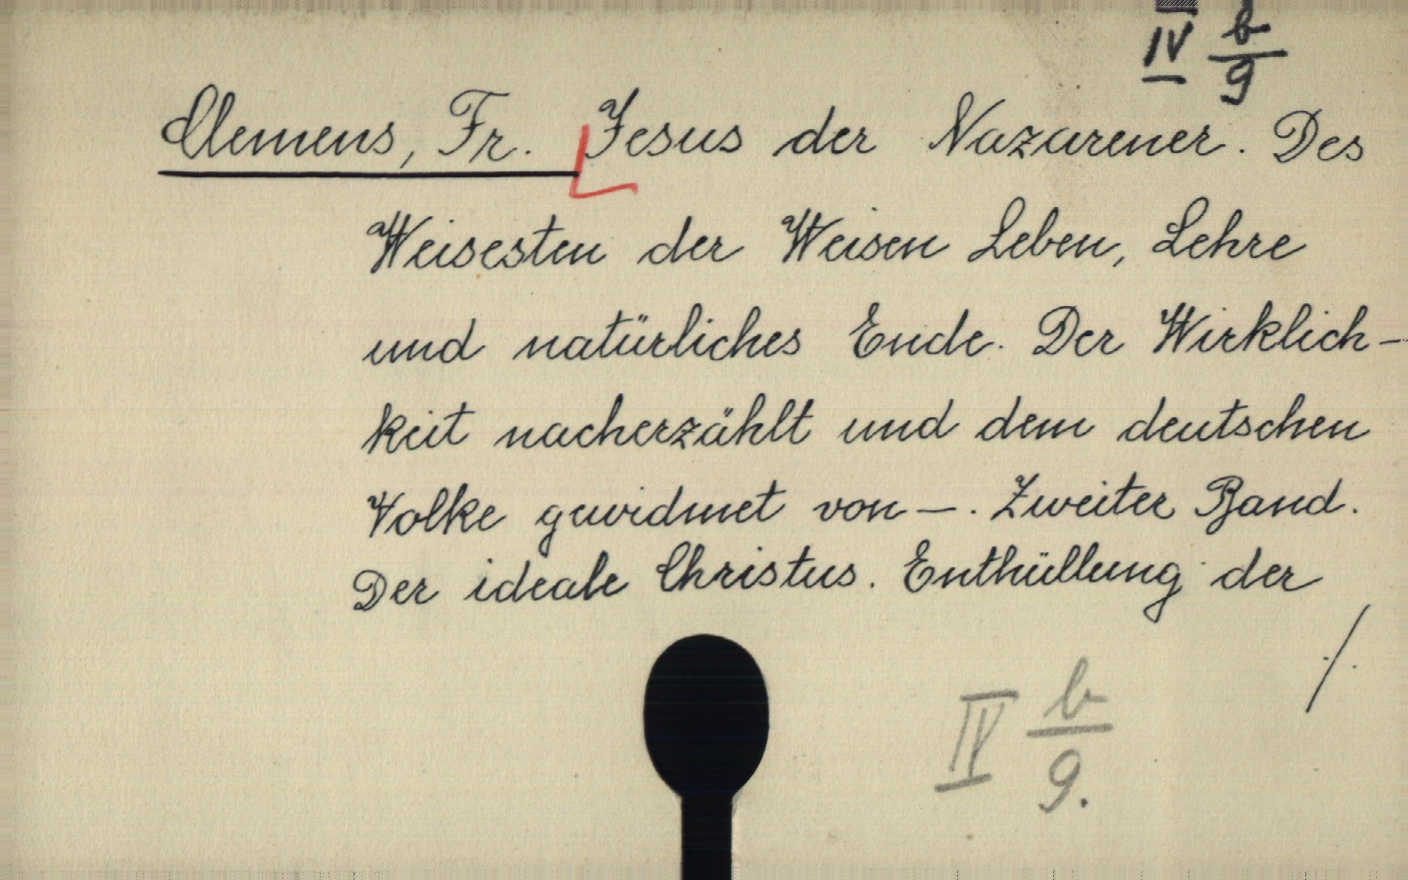 IV b/9
Clemens, Fr. Jesus der Nazarener. Des
Weisesten der Weisen Leben, Lehre
und natürliches Ende. Der Wirklich-
keit nacherzählt und dem deutschen
Volke gewidmet von —. Zweiter Band.
Der ideale Christus. Enthüllung der
./.
IV b/9.